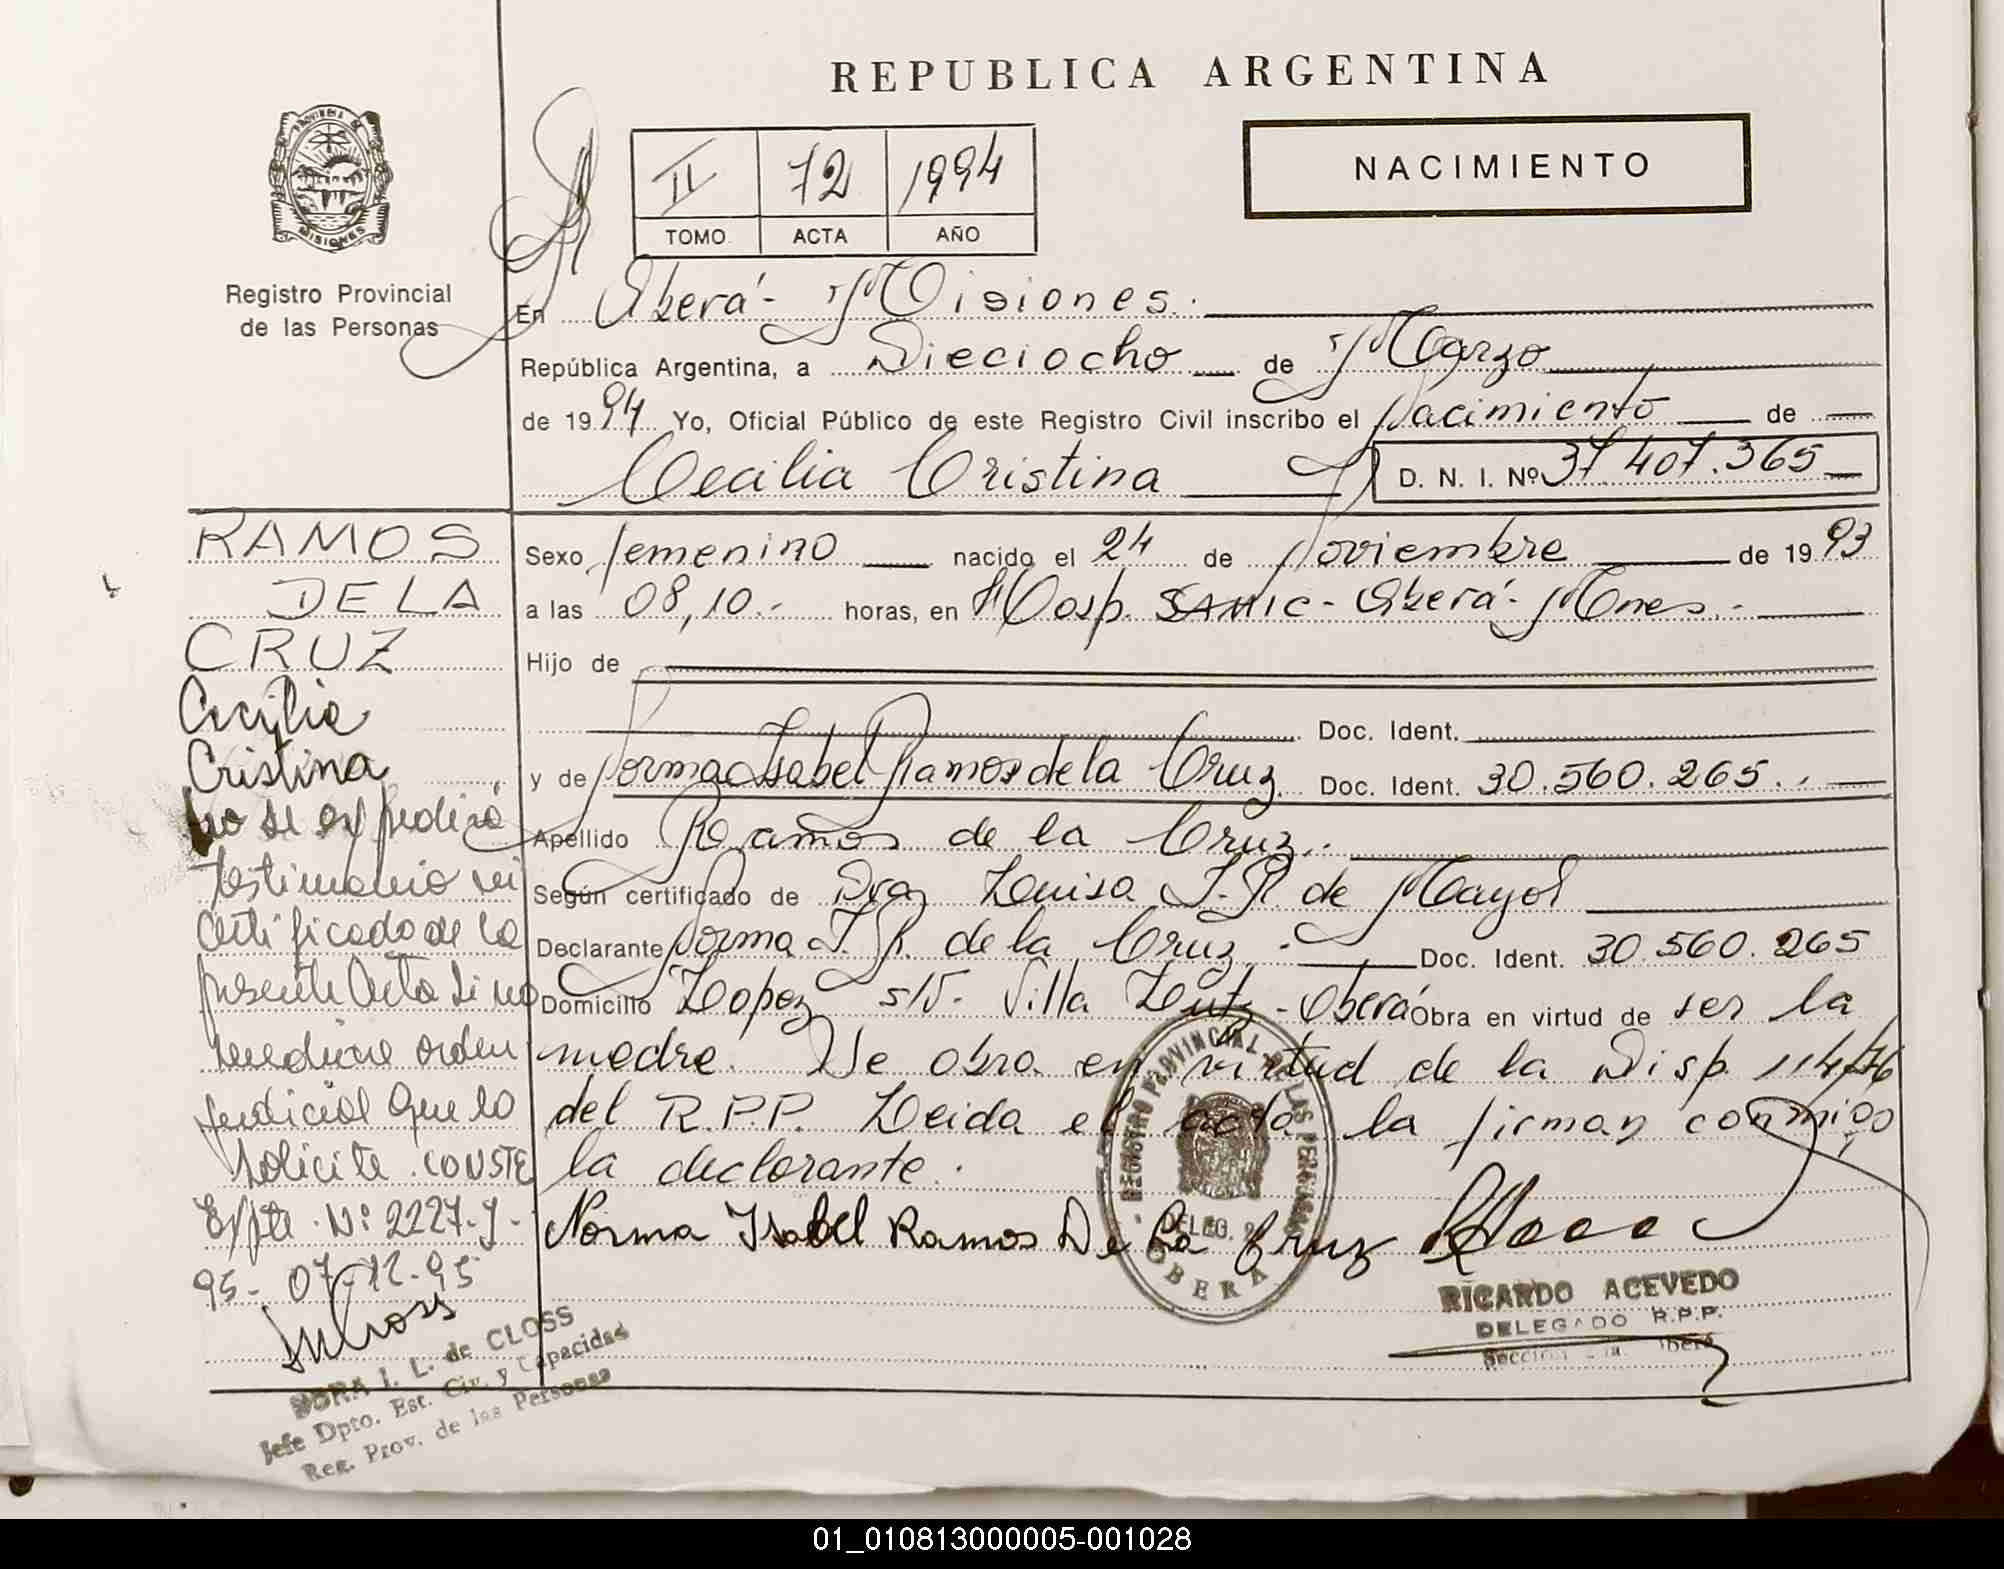 REPUBLICA ARGENTINA
PROVINCIA DE
MISIONES
Registro Provincial
de las Personas
II 72 1994
TOMO ACTA AÑO
NACIMIENTO
En Oberá - Misiones.
República Argentina, a Dieciocho de Marzo
de 1994 Yo, Oficial Público de este Registro Civil inscribo el Nacimiento de
Cecilia Cristina D. N. I. Nº 37.407.365
RAMOS
DE LA
CRUZ
Cecilia
Cristina
No se expedirá
testimonio ni
certificado de la
presente Acta si no
mediare orden
judicial que lo
solicite. CONSTE
Expte. Nº 2227-J-
95- 07-12-95
NORA I. L. de CLOSS
Jefe Dpto. Est. Civ. y Capacidad
Reg. Prov. de las Personas
Sexo femenino nacido el 24 de Noviembre de 1993
a las 08,10.- horas, en Hosp. SAMIC - Oberá - Mnes.-
Hijo de
Doc. Ident.
y de Norma Isabel Ramos de la Cruz Doc. Ident. 30.560.265.
Apellido Ramos de la Cruz.-
Según certificado de Dra Luisa J. R. de Mayol
Declarante Norma I. R. de la Cruz.- Doc. Ident. 30.560.265
Domicilio Lopez s/N- Villa Lutz - Oberá Obra en virtud de ser la
madre. Se obra en virtud de la Disp. 114/76
del R.P.P. Leida el acta la firman conmigo
la declarante.
Norma Isabel Ramos De La Cruz
REGISTRO PROVINCIAL DE LAS PERSONAS
DELEG.
OBERA
RICARDO ACEVEDO
DELEGADO R.P.P.
01_010813000005-001028